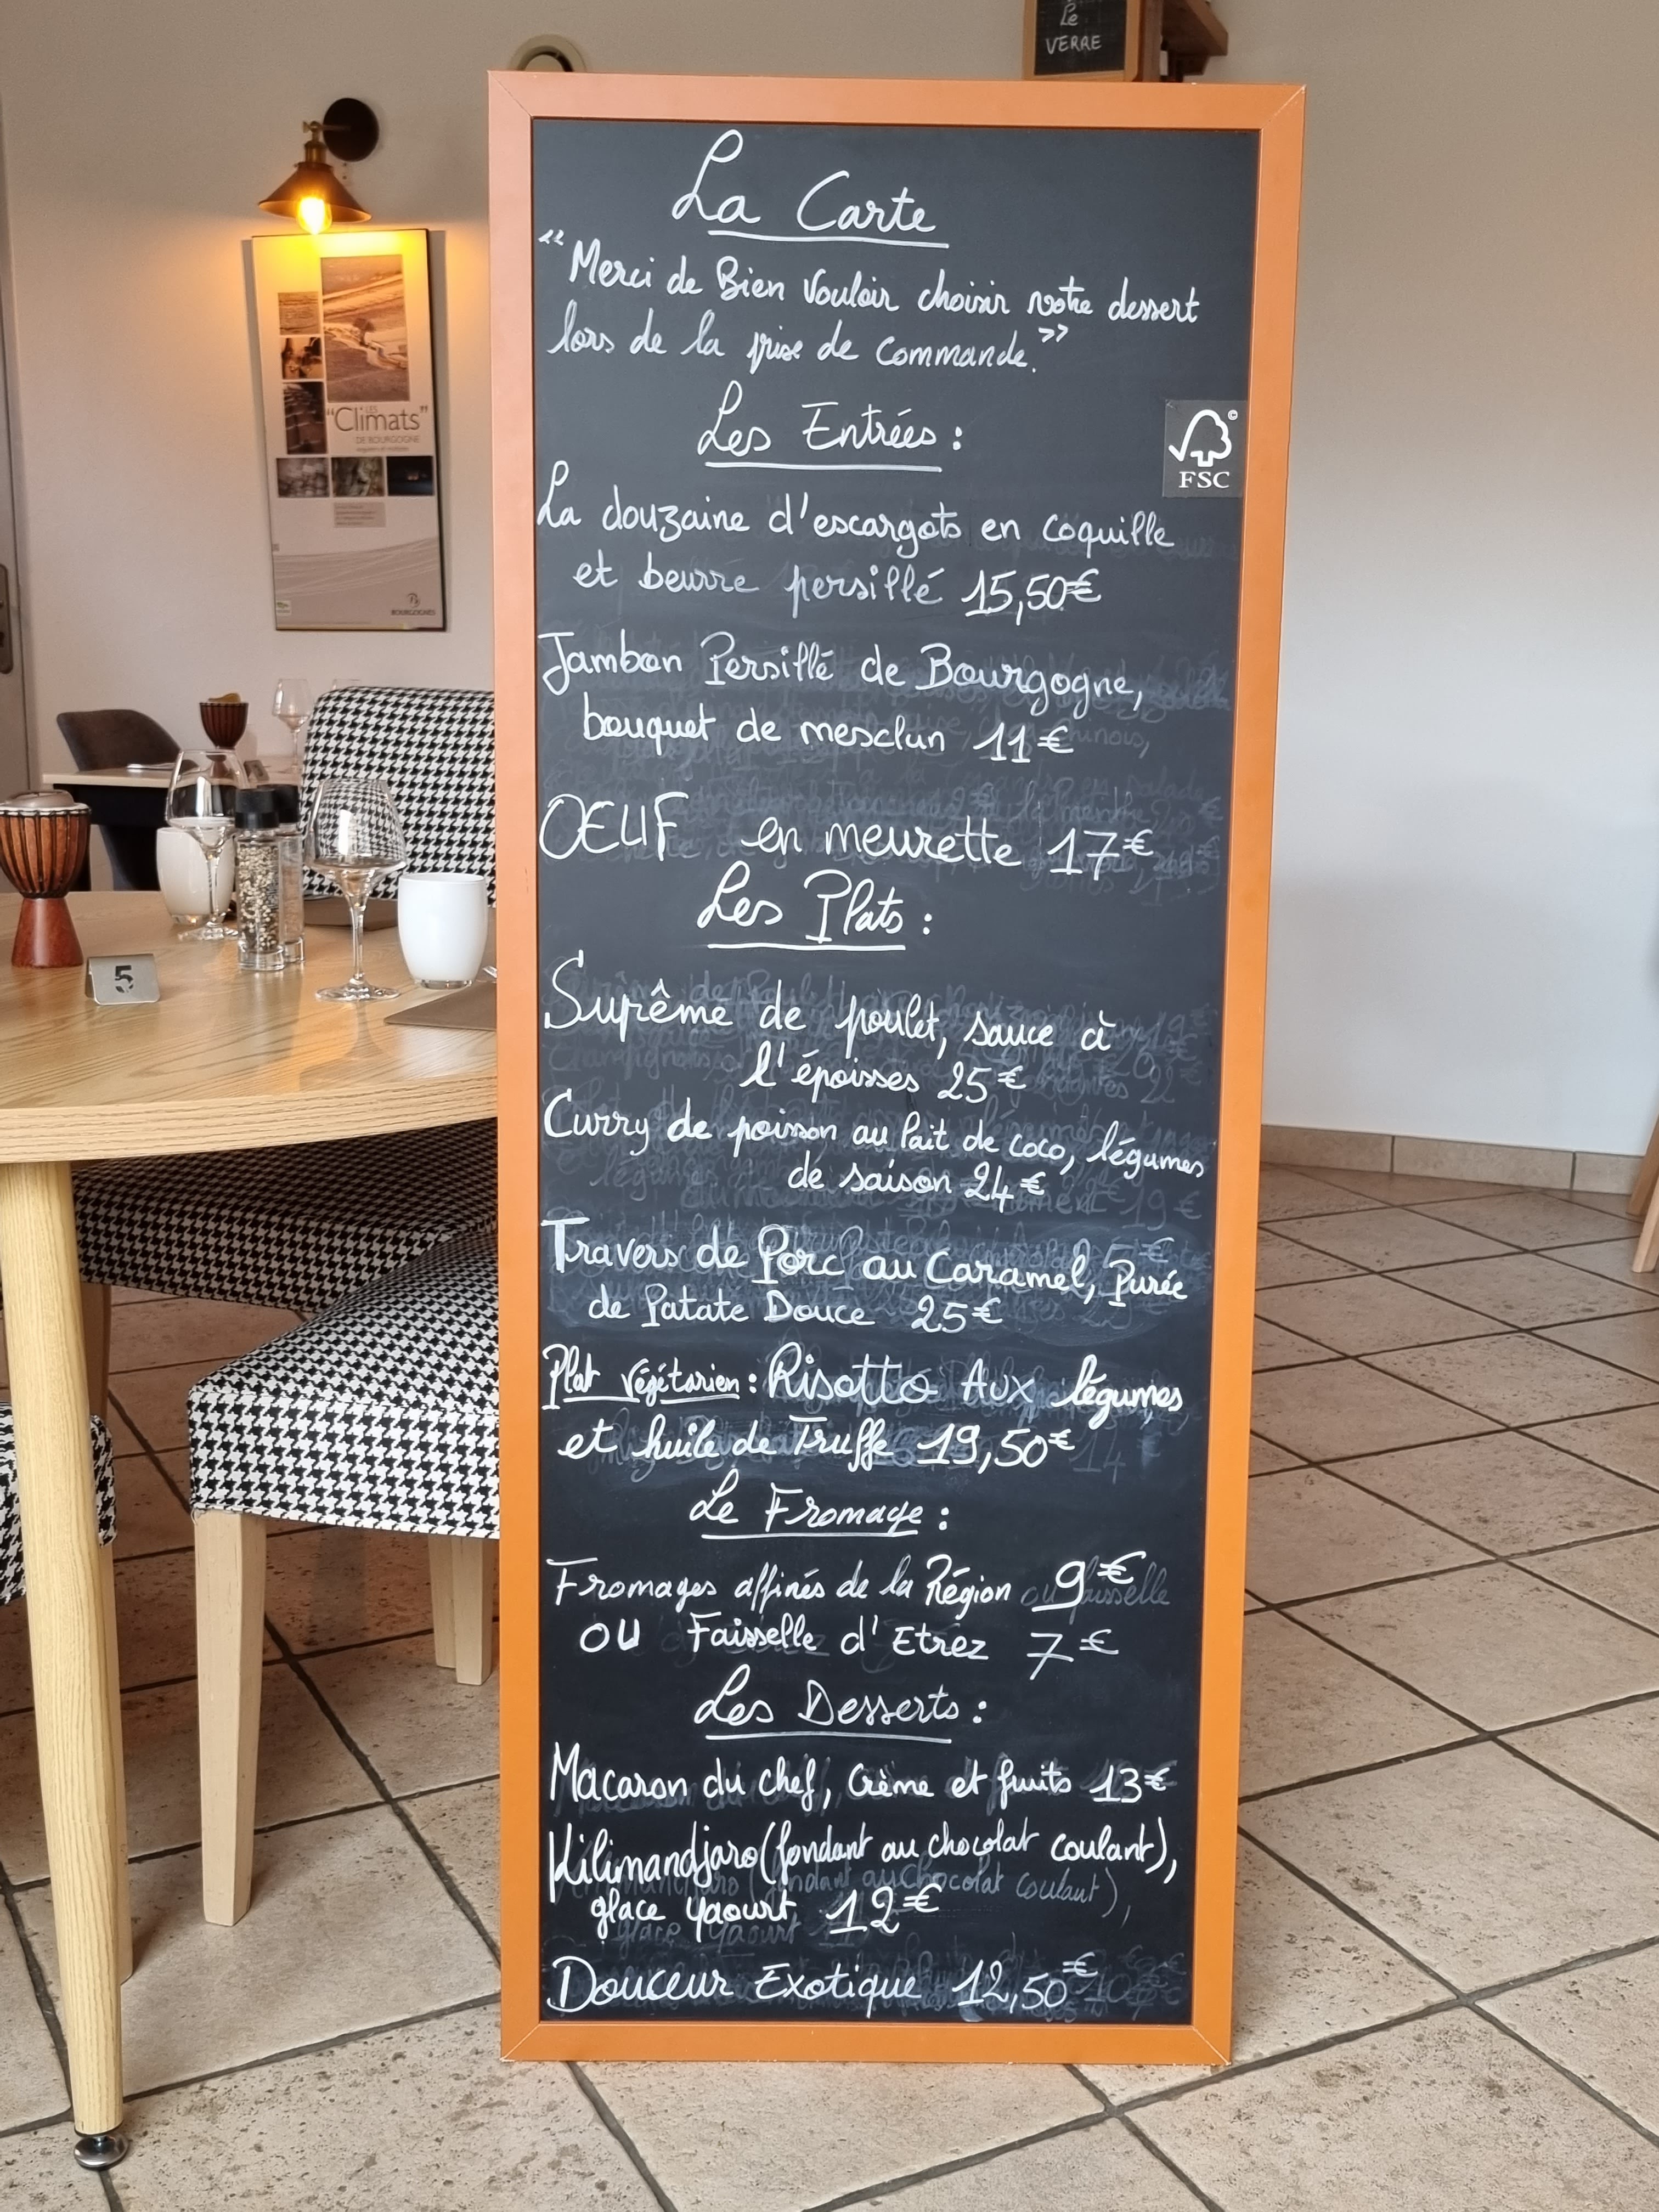 Le
VERRE
La Carte
“Merci de Bien Vouloir choisir votre dessert
lors de la prise de commande.”
Les Entrées :
FSC
La douzaine d'escargots en coquille
et beurre persillé 15,50€
Jambon Persillé de Bourgogne,
bouquet de mesclun 11€
OEUF en meurette 17€
Les Plats :
Suprême de poulet, sauce à
l'époisses 25€
Curry de poisson au lait de coco, légumes
de saison 24€
Travers de Porc au Caramel, Purée
de Patate Douce 25€
Plat végétarien : Risotto Aux légumes
et huile de Truffe 19,50€
Le Fromage :
Fromages affinés de la Région 9€
OU Faisselle d'Etrez 7€
Les Desserts :
Macaron du chef, Crème et fruits 13€
Kilimandjaro (fondant au chocolat coulant),
glace yaourt 12€
Douceur Exotique 12,50€
LES
“Climats”
DE BOURGOGNE
BOURGOGNES
5